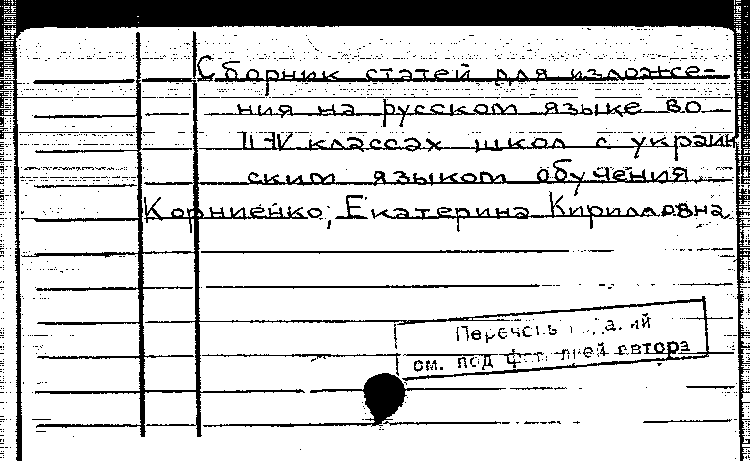 Сборник статей для изложе-
ния на русском языке во
II-IV классах школ с украин
ским языком обучения.
Корниенко, Екатерина Кирилловна
Перечень
см. под фамилией автора